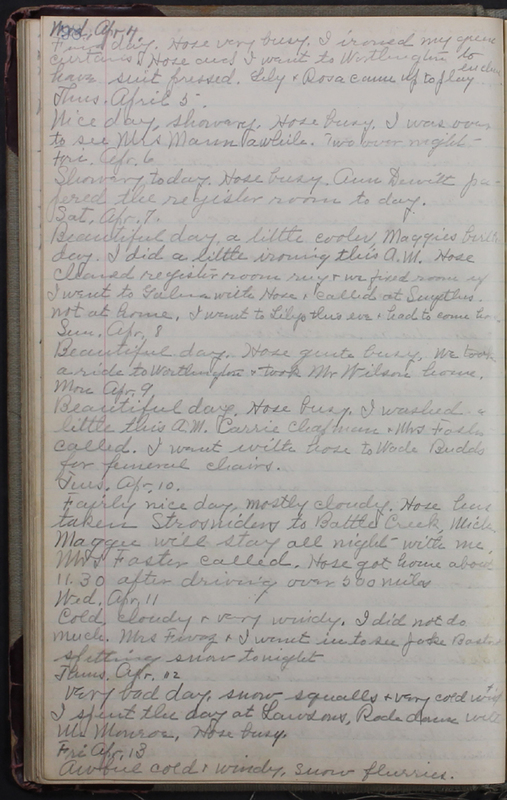 Wed. Apr. 4.
Fine day. Hose very busy. I ironed my
curtains & Hose and I went to Worthington to
have suit pressed. Lily & Rosa came up to play
Thurs. April 5.
Nice day, showery. Hose busy. I was over
to see Mrs Mann awhile. Two over night.
Fri. Apr. 6
Showery today. Hose busy. Ann Dewitt pa-
pered the register room to day.
Sat. Apr. 7.
Beautiful day, a little cooler, Maggies birth
day. I did a little ironing this A.M. Hose
cleaned register room rug & we fixed room up
I went to Galena with Hose & called at
not at home. I went to Lilys this eve & had to come
Sun. Apr. 8
Beautiful day. Hose quite busy. We took
a ride to Worthington & took Mr Wilson home.
Mon Apr. 9
Beautiful day. Hose busy. I washed a
little this A.M. Carrie Chapman & Mrs Foster
called. I went with hose to Wade Budds
for funeral chairs.
Tues. Apr. 10.
Fairly nice day, mostly cloudy. Hose has
taken Strosniders to Battle Creek, Mich
Maggie will stay all night with me.
Mrs Foster called. Hose got home about
11.30 after driving over 500 miles
Wed. Apr. 11
Cold, cloudy & very windy. I did not do
much. Mrs & I went in to see Jake
spitting snow tonight
Thurs. Apr. 12
Very bad day, snow squalls & very cold wind
I spent the day at Lawsons, Rode down with
Mr Monroe, Hose busy.
Fri Apr. 13
Awful cold & windy, snow flurries.